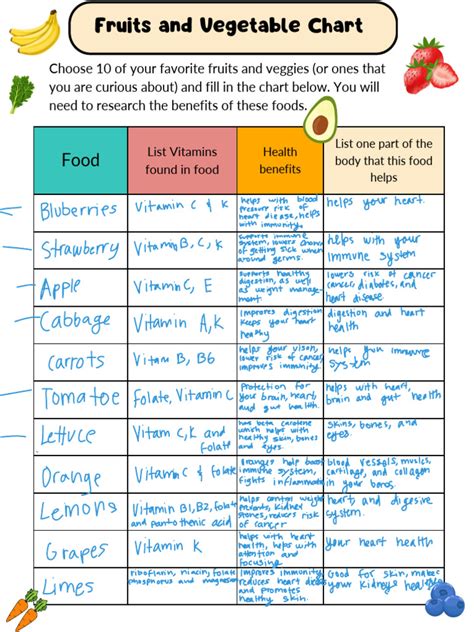 Fruits and Vegetable Chart
Choose 10 of your favorite fruits and veggies (or ones that
you are curious about) and fill in the chart below. You will
need to research the benefits of these foods.
Food
List Vitamins
found in food
Health
benefits
List one part of the
body that this food
helps
Bluberries
Vitamin C & K
helps with blood
pressure risk of
heart diease, helps
with immunity.
helps your heart.
Strawberry
Vitamin B, C, K
supports immune
system, lowers chance
of getting sick when
around germs.
helps with your
immune system
Apple
Vitamin C, E
supports healthy
digestion, as well
as weight manage-
ment.
lowers risk of cancer
cancer, diabetes, and
heart disease
Cabbage
Vitamin A,K
Improves digestion
keeps your heart
healthy
digestion and heart
health
carrots
Vitam B, B6
helps your vison,
lower risk of cancer
improves immunity.
helps yun immune
system
Tomatoe
Folate, Vitamin C
Protection for
your brain, heart,
and gut health.
helps with heart,
brain and gut health
Lettuce
Vitam C,K and
folate
has beta carotene
which helps with
healthy skin, bones
and eyes.
skins, bones, and
eyes.
Orange
Vitamin C & folate
Oranges help boost
immune system,
fights inflammation
blood vessals, muscles,
cartilage, and collagen
in your bones.
Lemons
Vitamin B1,B2, folate
and pantothenic acid
helps control weight
prevents, kidney
stones, reduces risk
of cancer
heart, and digesive
system.
Grapes
Vitamin K
helps with heart
health, helps with
attention and
focusing
your heart health
Limes
riboflurin, niacin, folate
phosphorus and magnesium
Improves immunity
reduces heart disease
and promotes
healthy skin.
Good for skin, makes
your kidneys healthy